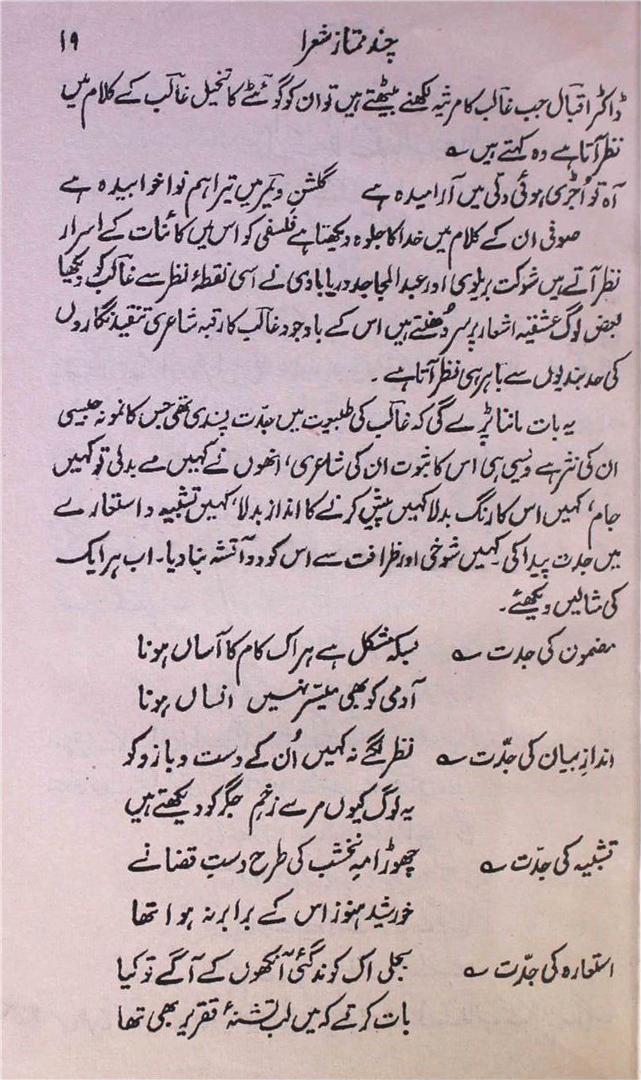 چند ممتاز شعرا
۱۹
ڈاکٹر اقبال جب غالب کا مرثیہ لکھنے بیٹھتے ہیں تو ان کو گوئٹے کا تخیل غالب کے کلام میں
نظر آتا ہے وہ کہتے ہیں ؎
آہ تو اُجڑی ہوئی دلی میں آرامیدہ ہے گلشنِ ویمر میں تیرا ہم نوا خوابیدہ ہے
صوفی ان کے کلام میں خدا کا جلوہ دیکھتا ہے فلسفی کو اس میں کائنات کے اسرار
نظر آتے ہیں شوکت بریلوی اور عبدالماجد دریابادی نے اسی نقطۂ نظر سے غالب کو دیکھا
بعض لوگ عشقیہ اشعار پر سر دُھنتے ہیں اس کے باوجود غالب کا رتبہ شاعری تنقید نگاروں
کی حد بندیوں سے باہر ہی نظر آتا ہے۔
یہ بات ماننا پڑے گی کہ غالب کی طبیعت میں جدّت پسندی تھی جس کا نمونہ جیسی
ان کی نثر ہے ویسی ہی اس کا ثبوت ان کی شاعری، انھوں نے کہیں مے بدلی تو کہیں
جام، کہیں اس کا رنگ بدلا کہیں پیش کرنے کا انداز بدلا، کہیں تشبیہ و استعارے
میں جدت پیدا کی۔ کہیں شوخی اور ظرافت سے اس کو دو آتشہ بنا دیا۔ اب ہر ایک
کی مثالیں دیکھئے۔
مضمون کی جدت ؎ بسکہ مشکل ہے ہر اک کام کا آساں ہونا
آدمی کو بھی میسّر نہیں انساں ہونا
اندازِ بیان کی جدّت ؎ نظر لگے نہ کہیں اُن کے دست و بازو کو
یہ لوگ کیوں مرے زخمِ جگر کو دیکھتے ہیں
تشبیہ کی جدّت ؎ چھوڑا مہِ نخشب کی طرح دستِ قضا نے
خورشید ہنوز اس کے برابر نہ ہوا تھا
استعارہ کی جدّت ؎ بجلی اک کوند گئی آنکھوں کے آگے تو کیا
بات کرتے کہ میں لب تشنۂ تقریر بھی تھا